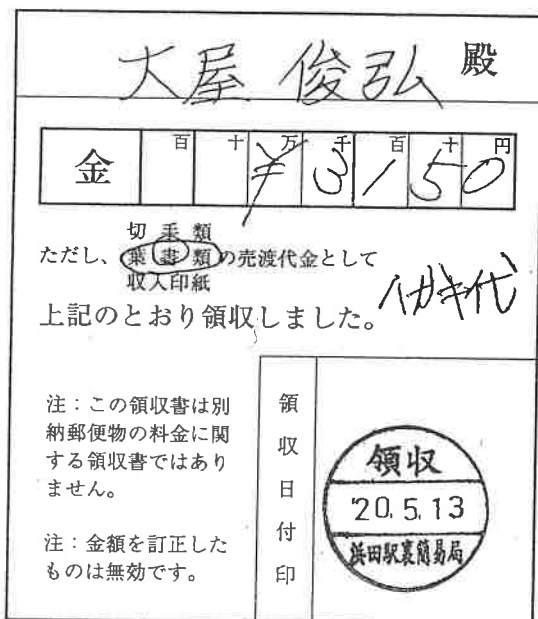 大屋 俊弘 殿
金 百 十 万 千 百 十 円
¥3150
切手類
ただし、葉書類の売渡代金として
収入印紙
ハガキ代
上記のとおり領収しました。
注：この領収書は別
納郵便物の料金に関
する領収書ではあり
ません。
注：金額を訂正した
ものは無効です。
領収日付印
領収
'20.5.13
浜田駅裏簡易局